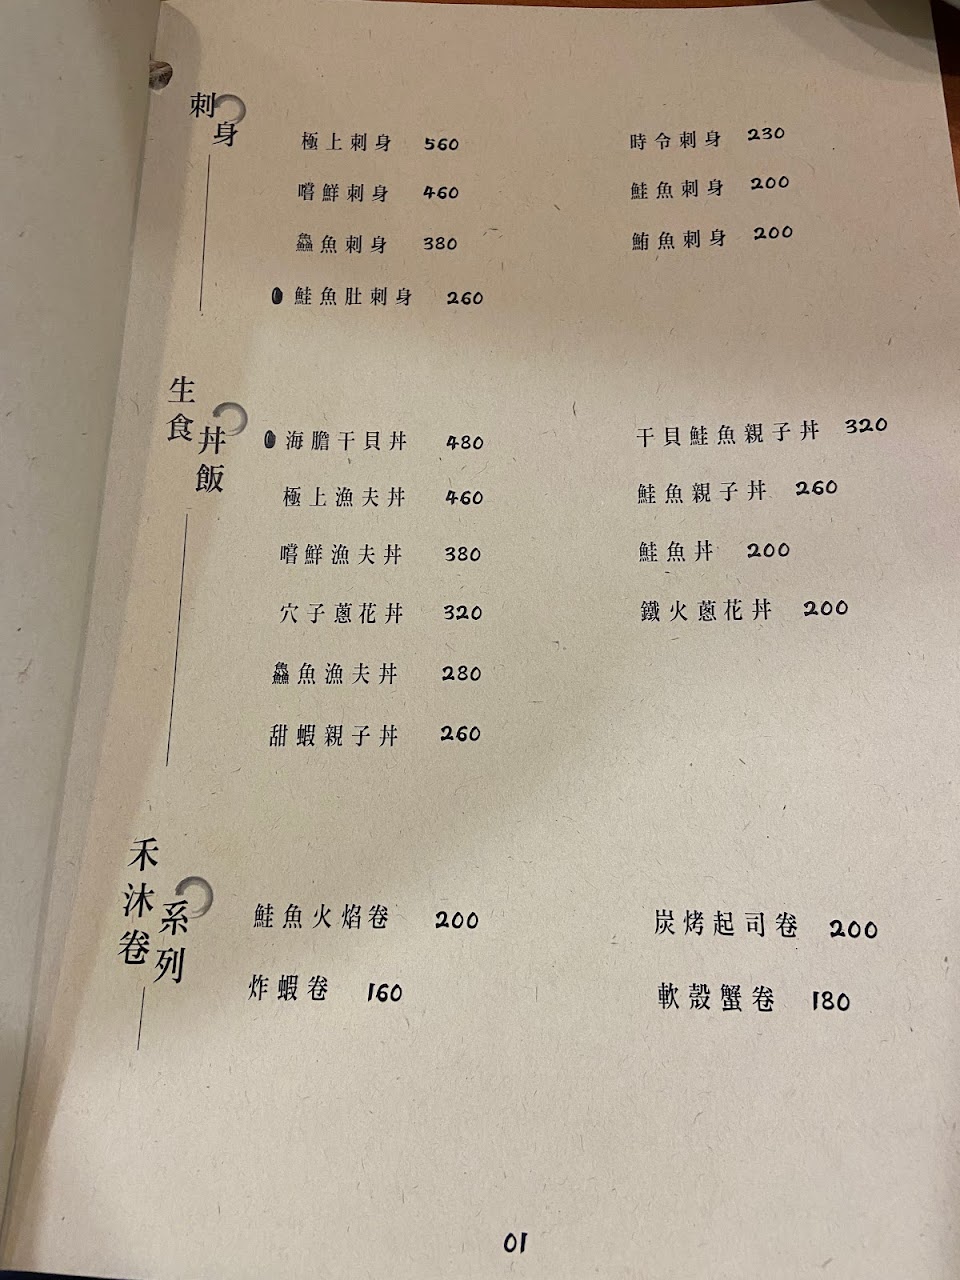 刺身
極上刺身 560
嚐鮮刺身 460
鱻魚刺身 380
鮭魚肚刺身 260
時令刺身 230
鮭魚刺身 200
鮪魚刺身 200
生食丼飯
海膽干貝丼 480
極上漁夫丼 460
嚐鮮漁夫丼 380
穴子蔥花丼 320
鱻魚漁夫丼 280
甜蝦親子丼 260
干貝鮭魚親子丼 320
鮭魚親子丼 260
鮭魚丼 200
鐵火蔥花丼 200
禾沐卷系列
鮭魚火焰卷 200
炸蝦卷 160
炭烤起司卷 200
軟殼蟹卷 180
01